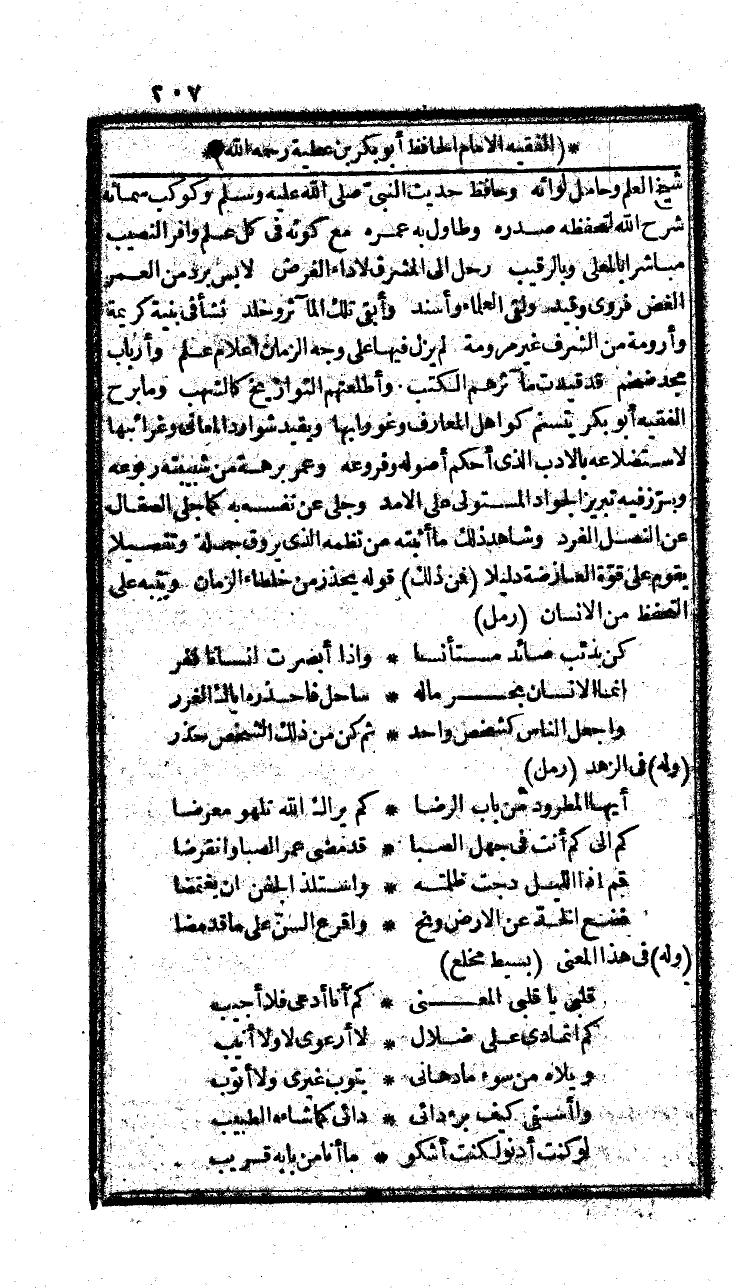 ٢٠٧
*(الفقيه الامام الحافظ أبو بكر بن عطية رحمه الله)*
شيخ العلم وحامل لوائه وحافظ حديث النبي صلى الله عليه وسلم وكوكب سمائه
شرح الله لتحفظه صدره وطاول به عمره مع كونه فى كل علم وافر النصيب
مباشرا بالمعلى والرقيب رحل الى المشرق لاداء الفرض لابس برد من العمر
الغض فروى وقيد ولقى العلماء وأسند وأبقى تلك المآثر وخلد نشأ فى بنية كريمة
وأرومة من الشرف غير مرومة لم يزل فيها على وجه الزمان أعلام علم وأرباب
مجد ضخم قد قيدت مآثرهم الكتب وأطلعتهم التواريخ كالشهب وما برح
الفقيه أبو بكر يتسنم كواهل المعارف وغواربها ويقيد شوارد المعانى وغرائبها
لاستضلاعه بالادب الذى أحكم أصوله وفروعه وعمر برهة من شبيبته ربوعه
وبرز فيه تبريز الجواد المستولى على الامد وجلى عن نفسه به كما جلى الصقال
عن النصل الفرد وشاهد ذلك ما أثبته من نظمه الذى يروق جملة وتفصيلا
يقوم على قوّة العارضة دليلا (فمن ذلك) قوله يحذر من خلطاء الزمان وينبه على
التحفظ من الانسان (رمل)
كن بذئب صائد مستأنسا * واذا أبصرت انسانا ففر
انما الانسان بحر ماله * ساحل فاحذره اياك الغرر
واجعل الناس كشخص واحد * ثم كن من ذلك الشخص حذر
(وله) فى الزهد (رمل)
أيها المطرود من باب الرضا * كم يراك الله تلهو معرضا
كم الى كم أنت فى جهل الصبا * قد مضى عمر الصبا وانقرضا
قم اذا الليل دجت ظلمته * واستلذ الجفن ان يغتمضا
فضع الخدّ على الارض ونح * واقرع السنّ على ما قد مضا
(وله) فى هذا المعنى (بسيط مخلع)
قلبى يا قلبى المعنى * كم أنا أدعى فلا أجيب
كم اتمادى على ضلال * لا أرعوى لا ولا أنيب
ويلاه من سوء ما دهانى * يتوب غيرى ولا أتوب
واأسفى كيف برء دائى * دائى كما شاءه الطبيب
لو كنت أدنو لكنت أشكو * ما أنا من بابه قريب